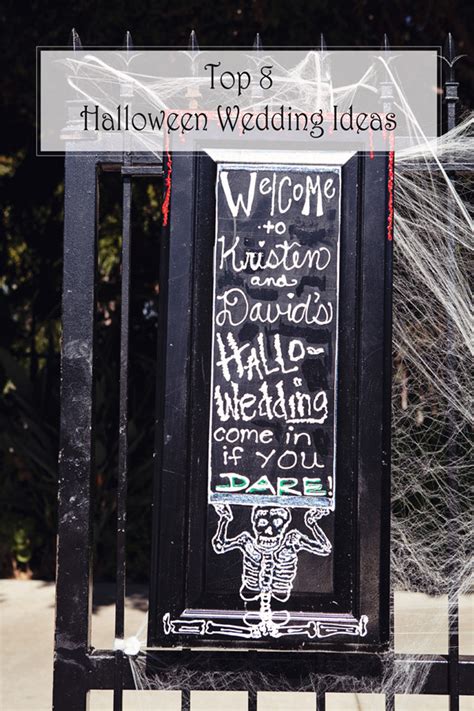 Top 8
Halloween Wedding Ideas
Welcome
to
Kristen
and
David's
HALLO-
Wedding
come in
if you
DARE!